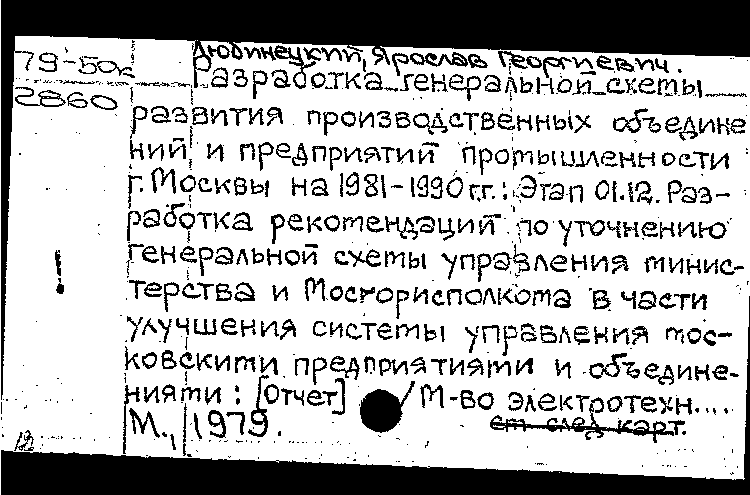 Любинецкий, Ярослав Георгиевич.
79-50к Разработка генеральной схемы
2860
развития производственных объедине
ний и предприятий промышленности
г. Москвы на 1981-1990 гг.: Этап 01.12. Раз-
работка рекомендаций по уточнению
генеральной схемы управления минис-
!
терства и Мосгорисполкома в части
улучшения системы управления мос-
ковскими предприятиями и объедине-
ниями: [Отчет] / М-во электротехн....
М., 1979. см. след. карт.
12